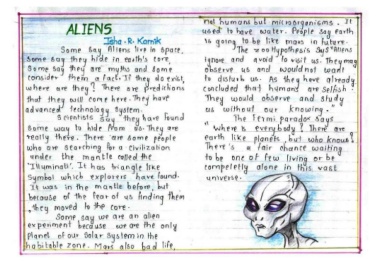 ALIENS
Isha. R. Karnik
Some say Aliens live in space,
some say they hide in earth's core,
some say they are myths and some
consider them a fact. If they do exist,
where are they? There are predictions
that they will come here. They have
advanced technology system.
Scientists say they have found
some way to hide from us. They are
really there. There are some people
who are searching for a civilization
under the mantle called the
'Illuminati'. It has triangle like
symbol which explorers have found.
It was in the mantle before, but
because of the fear of us finding them
they moved to the core.
Some say we are an alien
experiment because we are the only
planet of our Solar System in the
habitable zone. Mars also had life,
not humans but microorganisms. It
used to have water. People say earth
is going to be like mars in future.
The zoo Hypothesis says "Aliens
ignore and avoid to visit us. They may
observe us and would not want
to disturb us. As they have already
concluded that humans are selfish.
They would observe and study
us without our knowing."
The Fermi paradox says
"Where is everybody? There are
earth like planets, but who knows?
There's a fair chance waiting
to be one of few living or be
completely alone in this vast
universe.